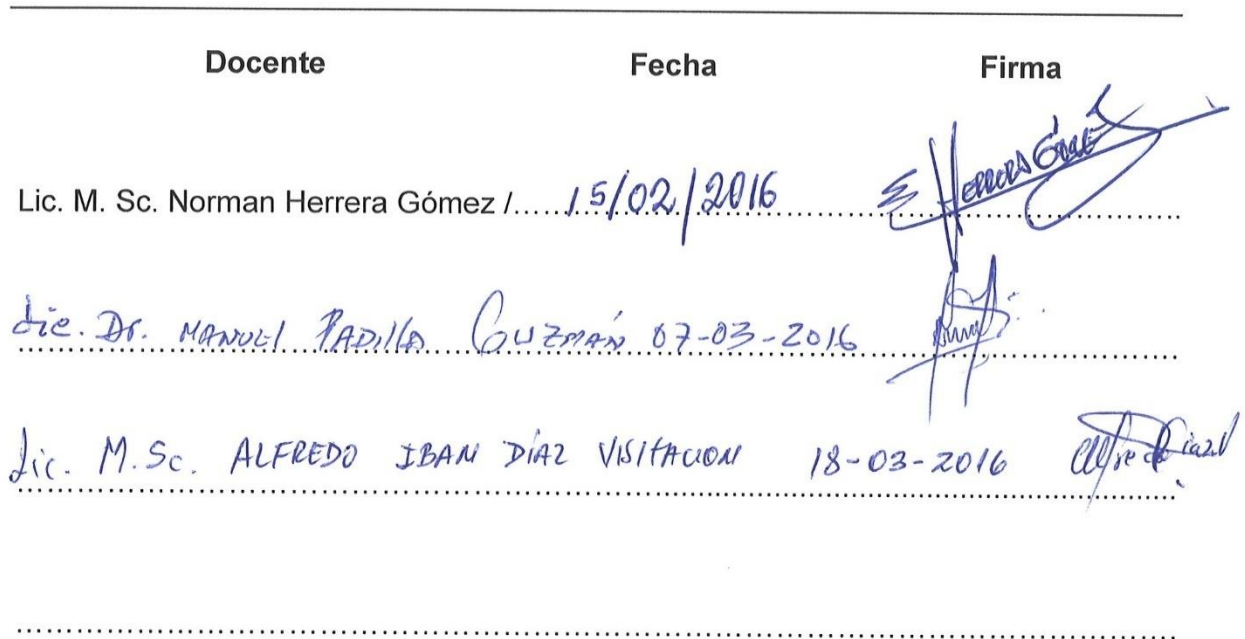 Docente Fecha Firma
Lic. M. Sc. Norman Herrera Gómez /.....15/02/2016 Herrera Gómez
Lic. Dr. MANUEL PADILLA GUZMÁN 07-03-2016
Lic. M.Sc. ALFREDO IBAN DÍAZ VISITACION 18-03-2016 Alfredo Diaz